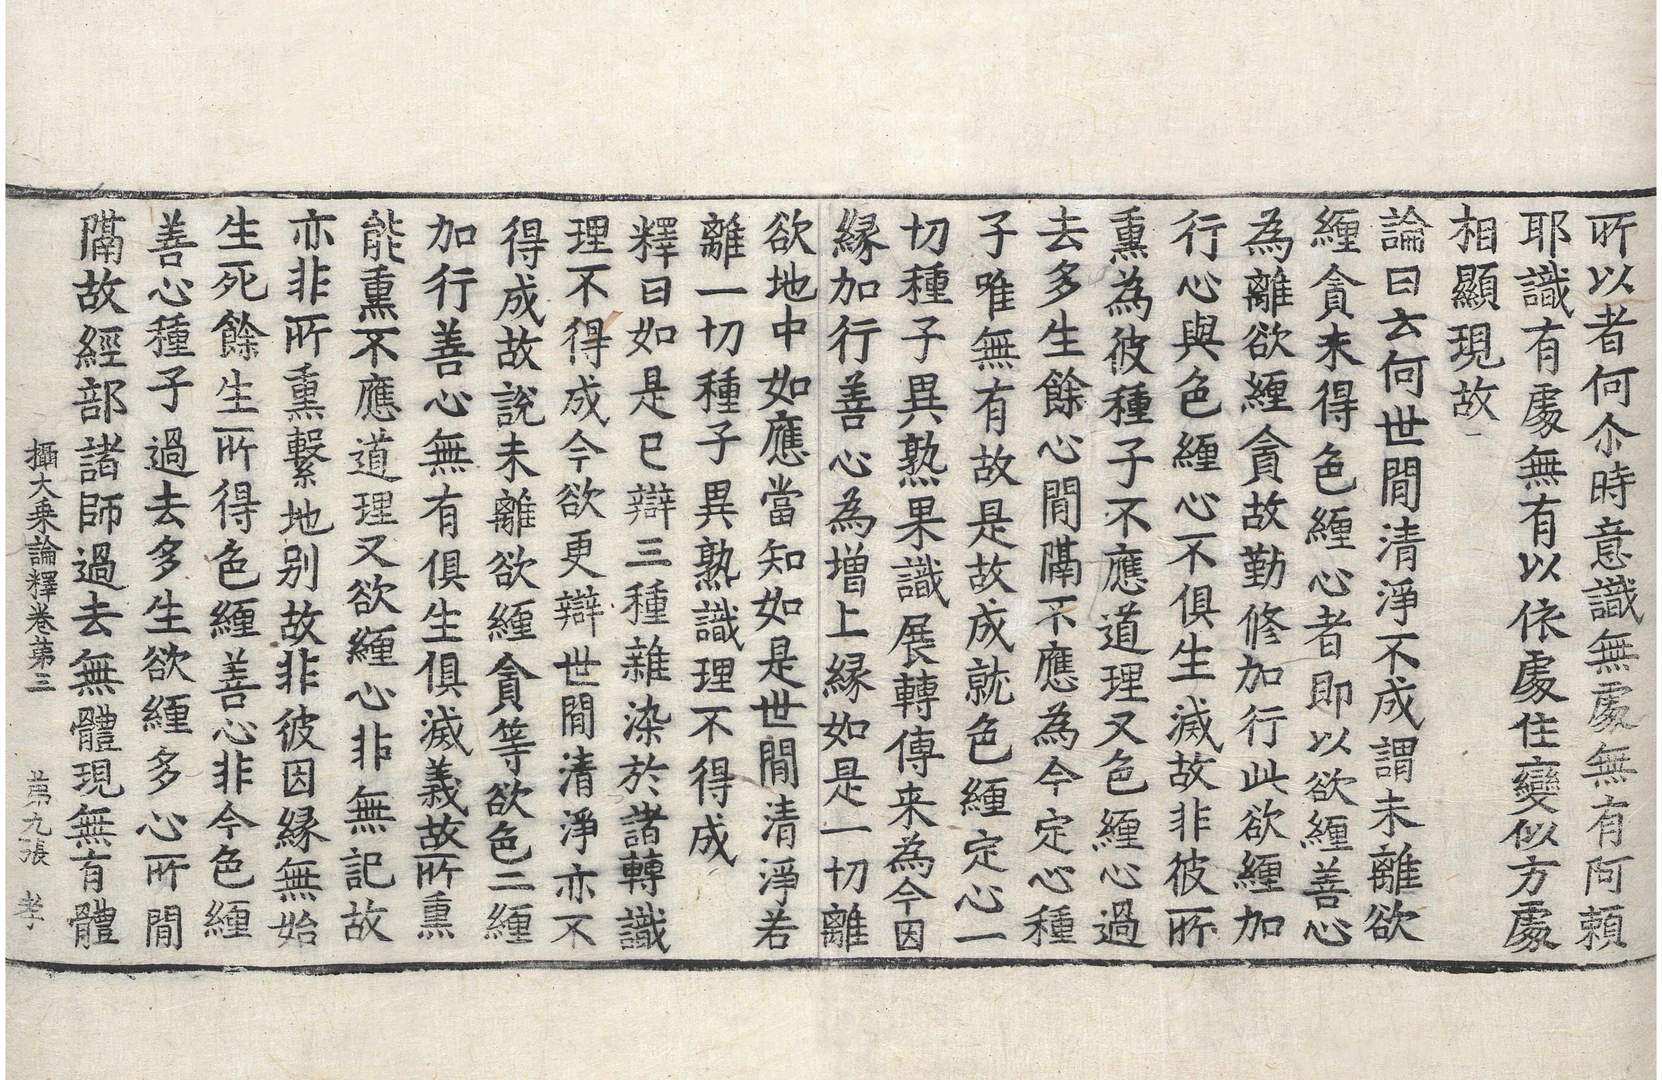 所以者何尒時意識無處無有阿賴
耶識有處無有以依處住變似方處
相顯現故
論曰云何世間清淨不成謂未離欲
纏貪未得色纏心者即以欲纏善心
為離欲纏貪故勤修加行此欲纏加
行心與色纏心不俱生滅故非彼所
熏為彼種子不應道理又色纏心過
去多生餘心間隔不應為今定心種
子唯無有故是故成就色纏定心一
切種子異熟果識展轉傳来為今因
縁加行善心為增上縁如是一切離
欲地中如應當知如是世間清淨若
離一切種子異熟識理不得成
釋曰如是已辯三種雜染於諸轉識
理不得成今欲更辯世間清淨亦不
得成故說未離欲纏貪等欲色二纏
加行善心無有俱生俱滅義故所熏
能熏不應道理又欲纏心非無記故
亦非所熏繫地別故非彼因縁無始
生死餘生所得色纏善心非今色纏
善心種子過去多生欲纏多心所間
隔故經部諸師過去無體現無有體
攝大乗論釋卷第三 第九張 孝